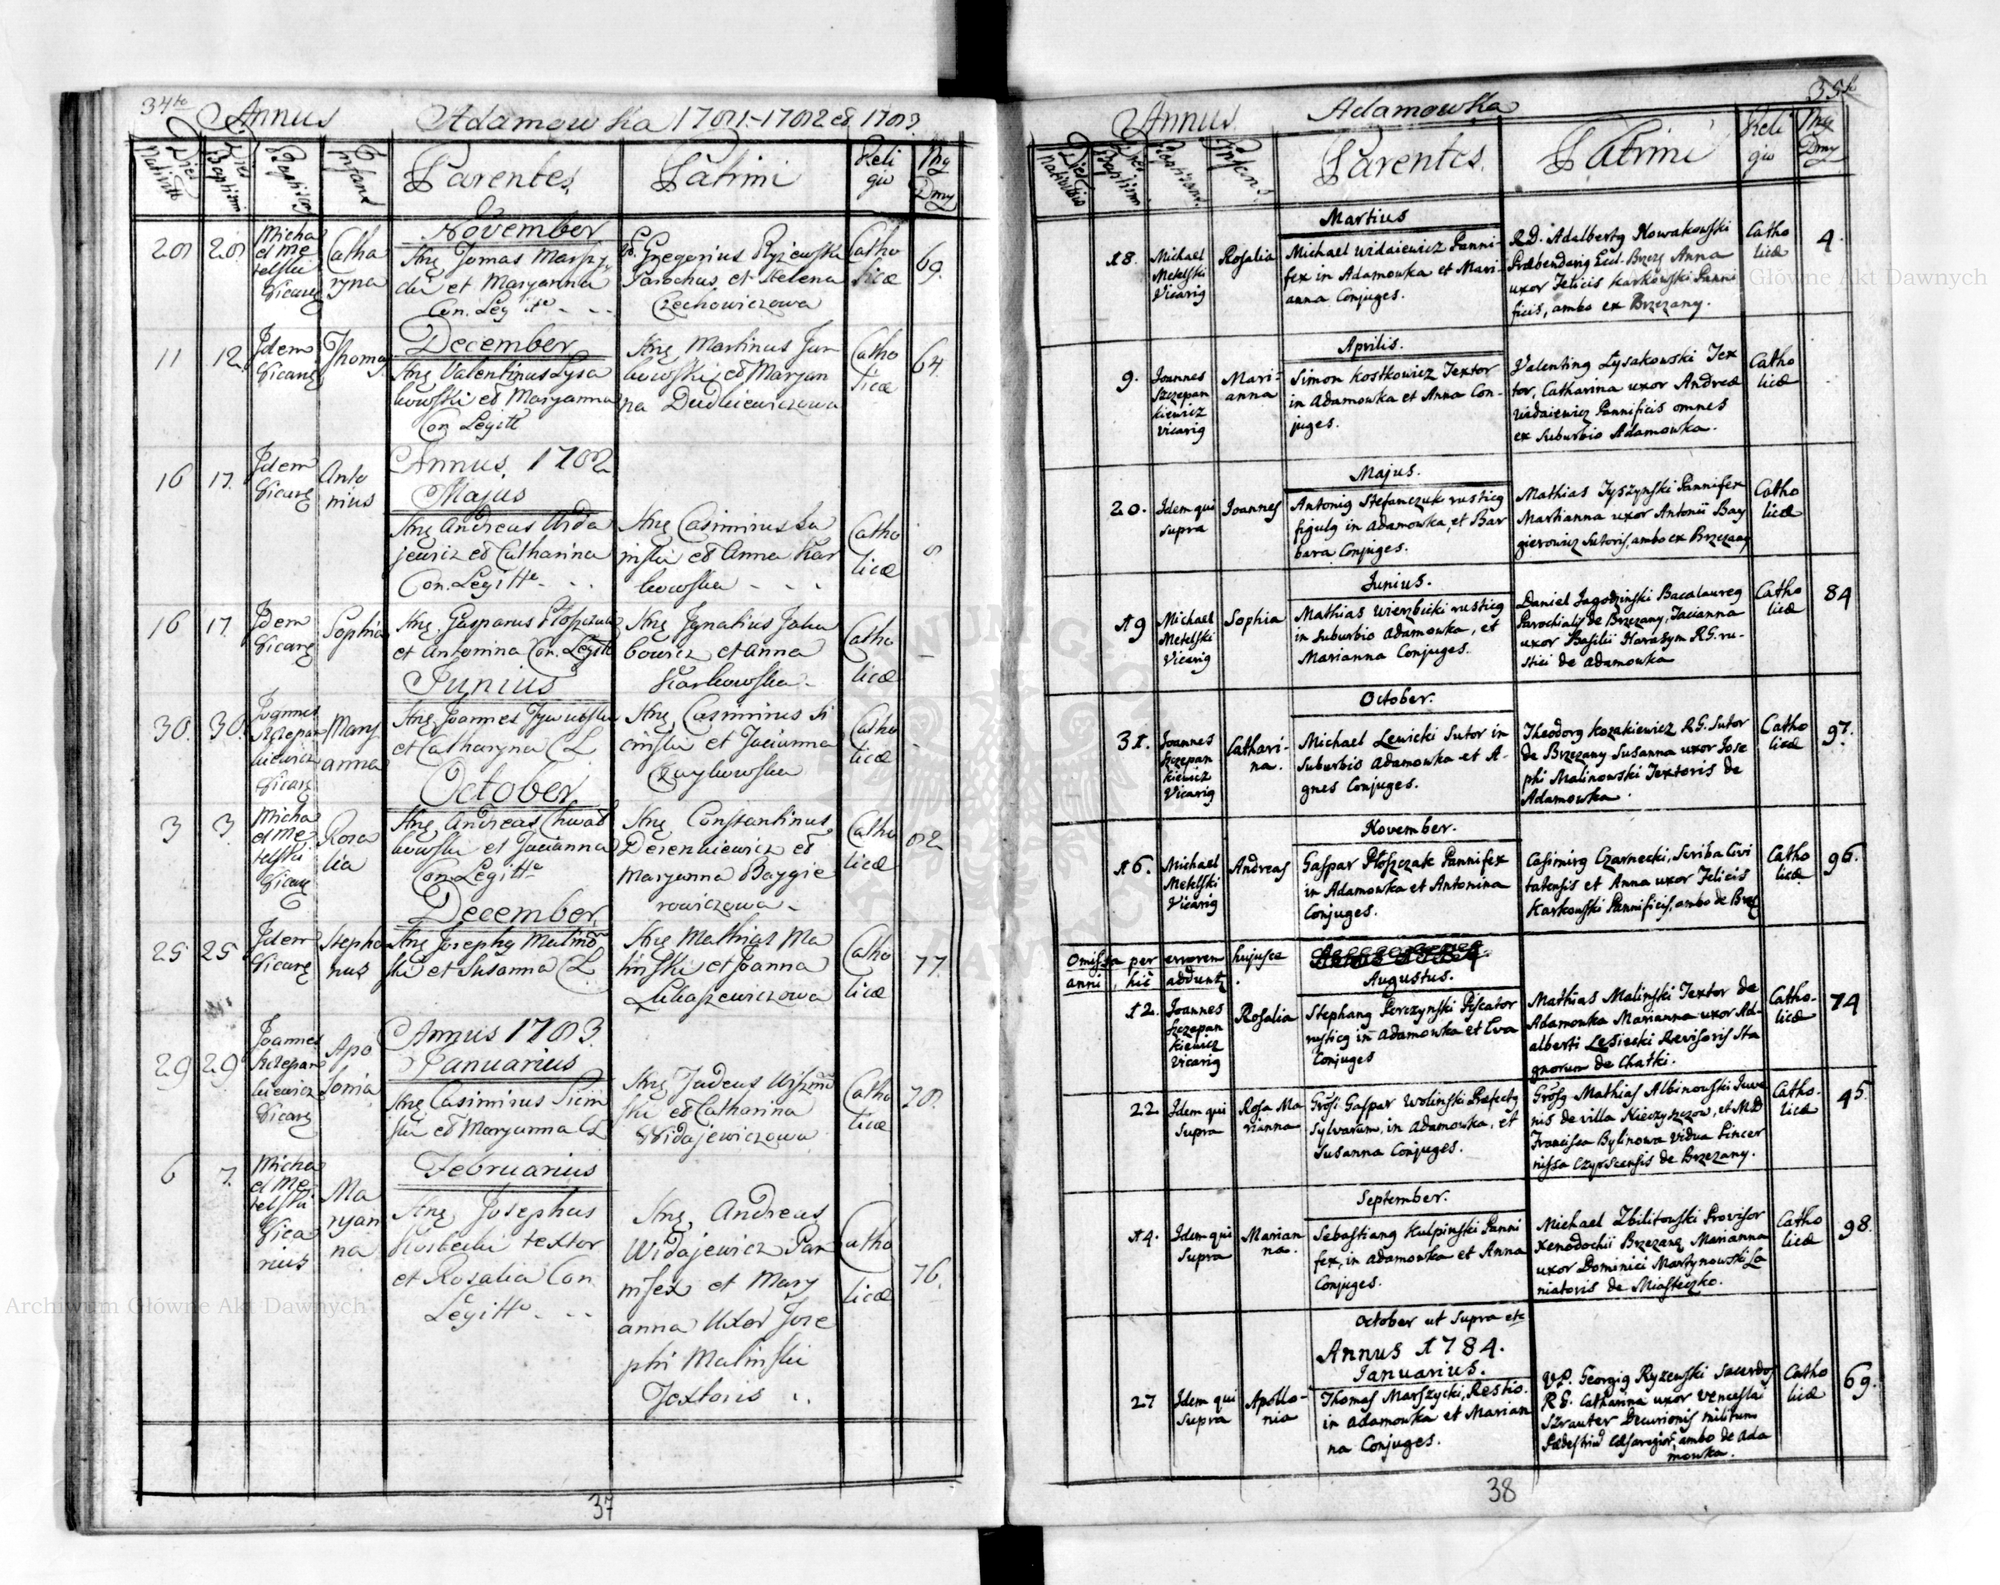 34to Annus Adamowka 1781.-1782 et 1783.
Dies Nativit
Dies Baptism
Baptisans
Infans
Parentes
Patrini
Religio
Nrus Dmus
November
28 28 Michael Metelski Vicarius
Catharyna
Strę Tomas Marszycki et Maryanna Con. Legitte
Gregorius Ryżewski Parochus, et Helena Czechowiczowa
Catholicæ
69.
December
11 12 Idem Vicarius
Thomas
Strę Valentinus Lysakowski et Maryanna Con Legitt
Strę Martinus Jurkowski et Maryanna Dudkiewiczowa
Catholicæ
64.
Annus 1782
Majus
16 17. Idem Vicarius
Antonius
Strę Andreas Widajewicz et Catharina Con. Legitte
Strę Casimirus et Anna Karkowska
Catholicæ
8
16 17. Idem Vicarius
Sophia
Strę Gasparus Płoszczak et Antonina Con. Legitt
Strę Ignatius Jakubowicz et Anna Karkowska
Catholicæ
Junius
30. 30. Joannes Szczepankiewicz Vicarius
Maryanna
Strę Joannes et Catharyna C L
Strę Casimirus et Jacianna Czaykowska
Catholicæ
October
3 3 Michael Metelski Vicarius
Rosalia
Strę Andreas Chwadkowski et Jacianna Con Legitte
Strę Constantinus Derenkiewicz et Maryanna Baygierowiczowa
Catholicæ
82
December
25 25 Idem Vicarius
Stephanus
Strę Josephus Malinowski et Susanna C L
Strę Mathias Malinski et Joanna Lukaszewiczowa
Catholicæ
77.
Annus 1783.
Januarius
29 29. Joannes Szczepankiewicz Vicarius
Apolonia
Strę Casimirus et Maryanna C L
Strę Tadeus et Catharina Widajewiczowa
Catholicæ
78.
Februarius
6 7. Michael Metelski Vicarius
Maryanna
Strę Josephus textor
et Rosalia Con.
Legitte
Strę Andreas
Widajewicz Pannifex et Maryanna Uxor Josephi Malinski
Textoris
Catholicæ
76.
37
Annus Adamowka 35to
Dies Nativitatis
Dies Baptism
Baptisans
Infans
Parentes
Patrini
Religio
Nrus Dmus
Martius
18. Michael Metelski Vicarius
Rosalia
Michael Widaiewicz Pannifex in Adamowka et Marianna Conjuges.
R.D. Adalbertus Nowakowski
Præbendarius Eccl. Brzez Anna
uxor Felicis Karkowski Pannificis, ambo ex Brzezany.
Catholicæ
4.
Aprilis.
9. Joannes Szczepankiewicz Vicarius
Marianna
Simon Kostkowicz Textor
in Adamowka et Anna Conjuges.
Valentinus Lysakowski Textor, Catharina uxor Andreæ
Widaiewicz Pannificis omnes
ex Suburbio Adamowka.
Catholicæ
Majus.
20. Idem qui supra
Joannes
Antonius Stefanczuk rusticus
figulus in Adamowka, et Barbara Conjuges.
Mathias Tyszynski Pannifex
Marianna uxor Antonii Baygierowicz Sutoris, ambo ex Brzezany
Catholicæ
Junius.
19 Michael Metelski Vicarius
Sophia
Mathias Wierzbicki rusticus
in Suburbio Adamowka, et
Marianna Conjuges.
Daniel Jagodzinski Bacalaureus
Parochialis de Brzezany, Jacianna
uxor Basilii Harasym R.G. rustici de Adamowka
Catholicæ
84
October.
31. Joannes Szczepankiewicz Vicarig
Catharina.
Michael Lewicki Sutor in
Suburbio Adamowka et Agnes Conjuges.
Theodorg Kozakiewicz R.G. Sutor
de Brzezany Susanna uxor Josephi Malinowski Textoris de
Adamowka.
Catholicæ
97.
November.
16. Michael Metelski Vicarig
Andreas
Gaspar Płoszczak Pannifex
in Adamowka et Antonina
Conjuges.
Casimirg Czarnecki, Scriba Civitatensis et Anna uxor Felicis
Karkowski Pannificis, ambo de Brzez
Catholicæ
96.
Omissa per errorem hujusce
anni, hic adduntz.
Augustus.
12. Joannes Szczepankiewicz Vicarig
Rosalia
Stephang Perczynski Piscator
rusticg in Adamowka et Eva
Conjuges
Mathias Malinski Textor de
Adamowka Marianna uxor Adalberti Lesiecki Revisoris Stagnorum de Chatki.
Catholicæ
74
22. Idem qui supra
Rosa Marianna
Grosi Gaspar Wolinski Præfectg
Sylvarum, in Adamowka, et
Susanna Conjuges.
Grosg Mathias Albinowski Juvenis de villa Kieczyszczow, et M.D
Francisca Bylinowa Vidua Pincernissa Czyrscensis de Brzezany.
Catholicæ
45.
September.
14. Idem qui supra
Marianna.
Sebastiang Kulpinski Pannifex, in Adamowka et Anna
Conjuges.
Michael Zbilitowski Provisor
Xenodochii Brzezanę Marianna
uxor Dominici Martynowski Laniatoris de Miasteczko.
Catholicæ
98.
October ut supra etc
Annus 1784.
Januarius.
27 Idem qui supra
Apollonia
Thomas Marszycki, Restio.
in Adamowka et Marianna Conjuges.
V.P. Georgig Ryzewski Sacerdos
R.G. Catharina uxor Venceslai
Szrauter Decurionis militum
ambo de Adamowka.
Catholicæ
69.
38
Archiwum Główne Akt Dawnych
Główne Akt Dawnych